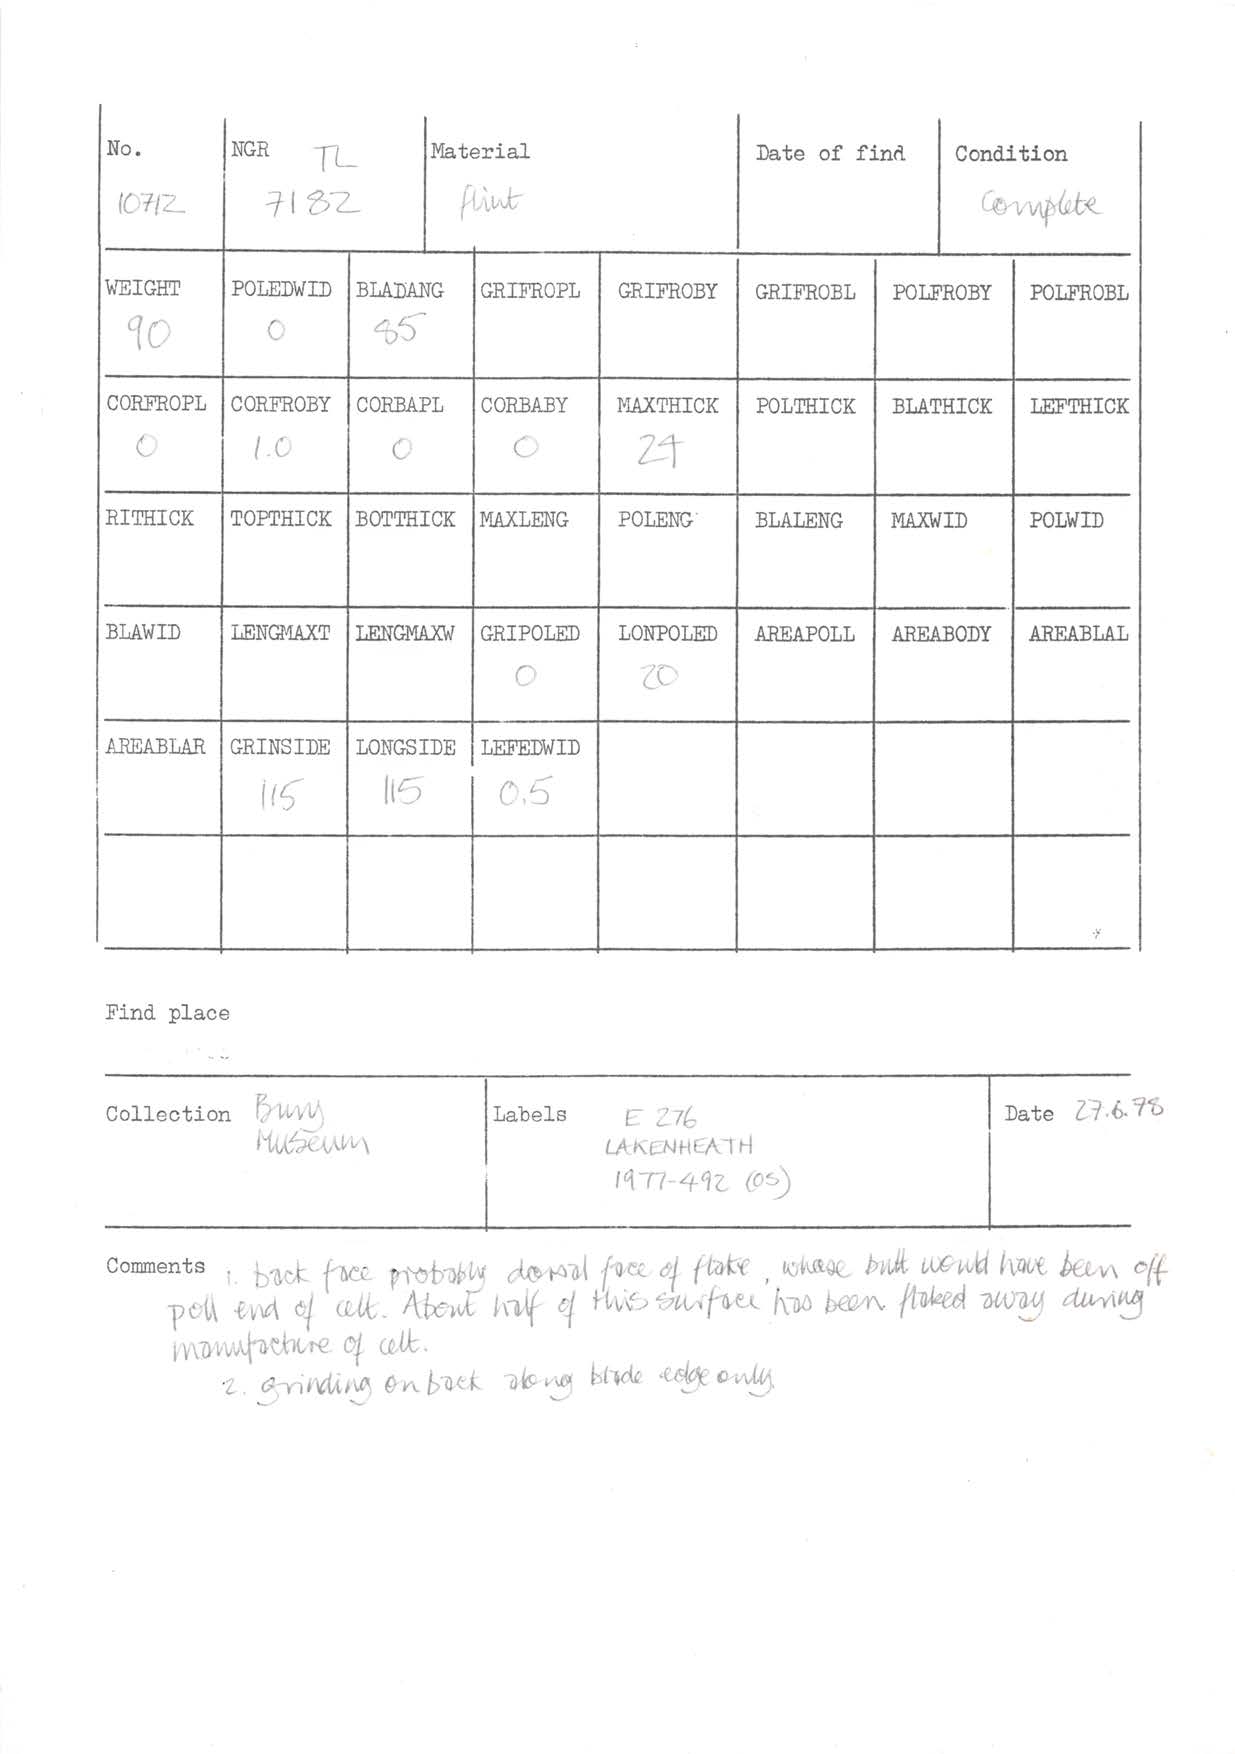 No. NGR TL Material Date of find Condition
10712 7182 flint Complete
WEIGHT POLEDWID BLADANG GRIFROPL GRIFROBY GRIFROBL POLFROBY POLFROBL
90 0 85
CORFROPL CORFROBY CORBAPL CORBABY MAXTHICK POLTHICK BLATHICK LEFTHICK
0 1.0 0 0 24
RITHICK TOPTHICK BOTTHICK MAXLENG POLENG BLALENG MAXWID POLWID
BLAWID LENGMAXT LENGMAXW GRIPOLED LONPOLED AREAPOLL AREABODY AREABLAL
0 20
AREABLAR GRINSIDE LONGSIDE LEFEDWID
115 115 0.5
Find place
Collection Bury Labels E 276 Date 27.6.78
Museum LAKENHEATH
1977-492 (OS)
Comments 1. back face probably dorsal face of flake, whose butt would have been off
poll end of celt. About half of this surface has been flaked away during
manufacture of celt.
2. grinding on back along blade edge only.